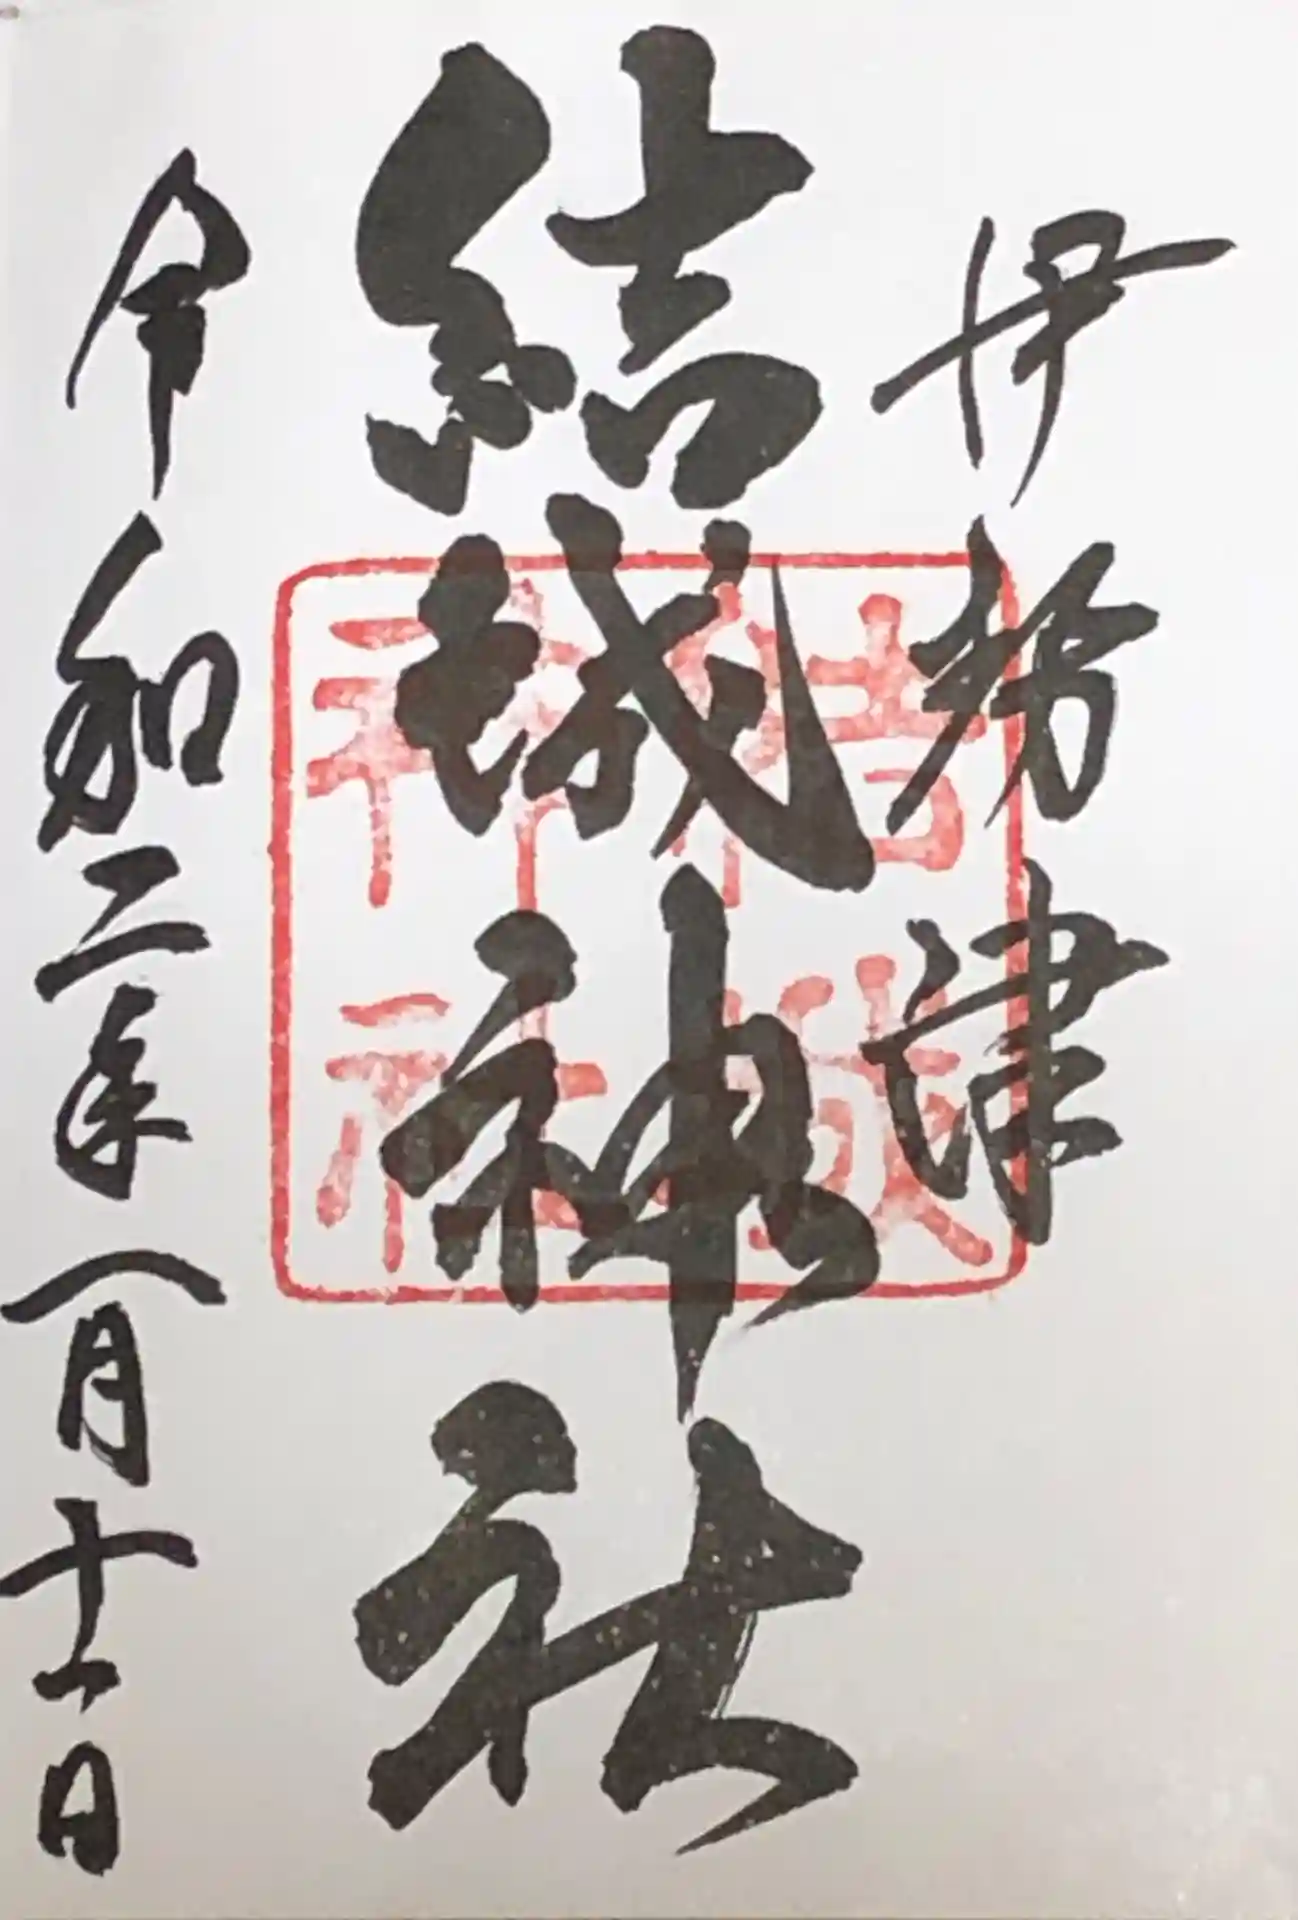 伊勢津
結城神社
結城
神社
令和二年八月十一日